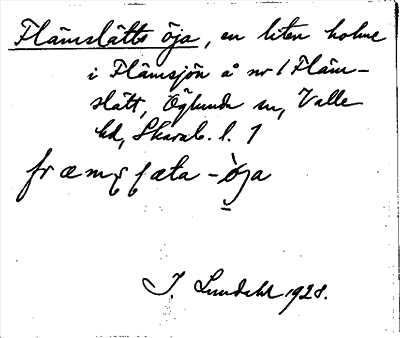 Flämslätts öja, en liten holme
i Flämsjön å nr 1 Fläm-
slätt, Öglunda sn, Valle
hd, Skarab. l.
öja
I. Lundahl 1928.